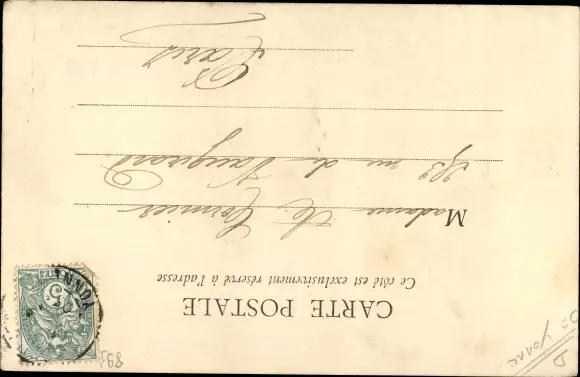 CARTE POSTALE
Ce côté est exclusivement réservé à l'adresse
Madame Le Cornier
393 rue de Vaugirard
Paris
YONNE
5
89
D
Yonne